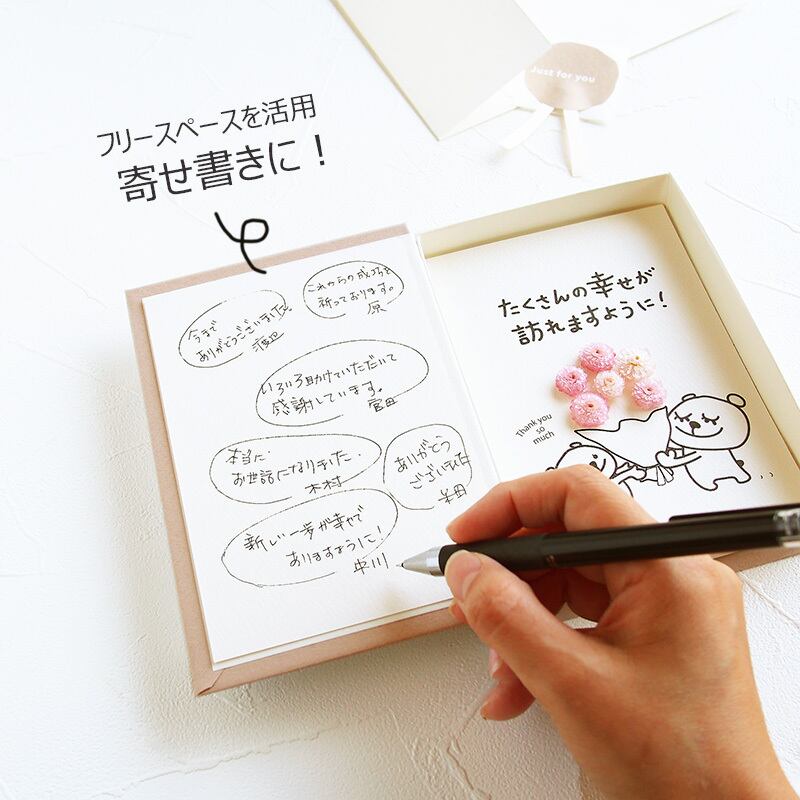 Just for you
フリースペースを活用
寄せ書きに！
今まで
ありがとうございました。
渡辺
これからの成功を
祈っております。
原
いろいろ助けていただいて
感謝しています。
宮田
本当に
お世話になりました。
木村
ありがとう
ございました
半田
新しい一歩が幸せで
ありますように！
中川
たくさんの幸せが
訪れますように！
Thank you
so
much